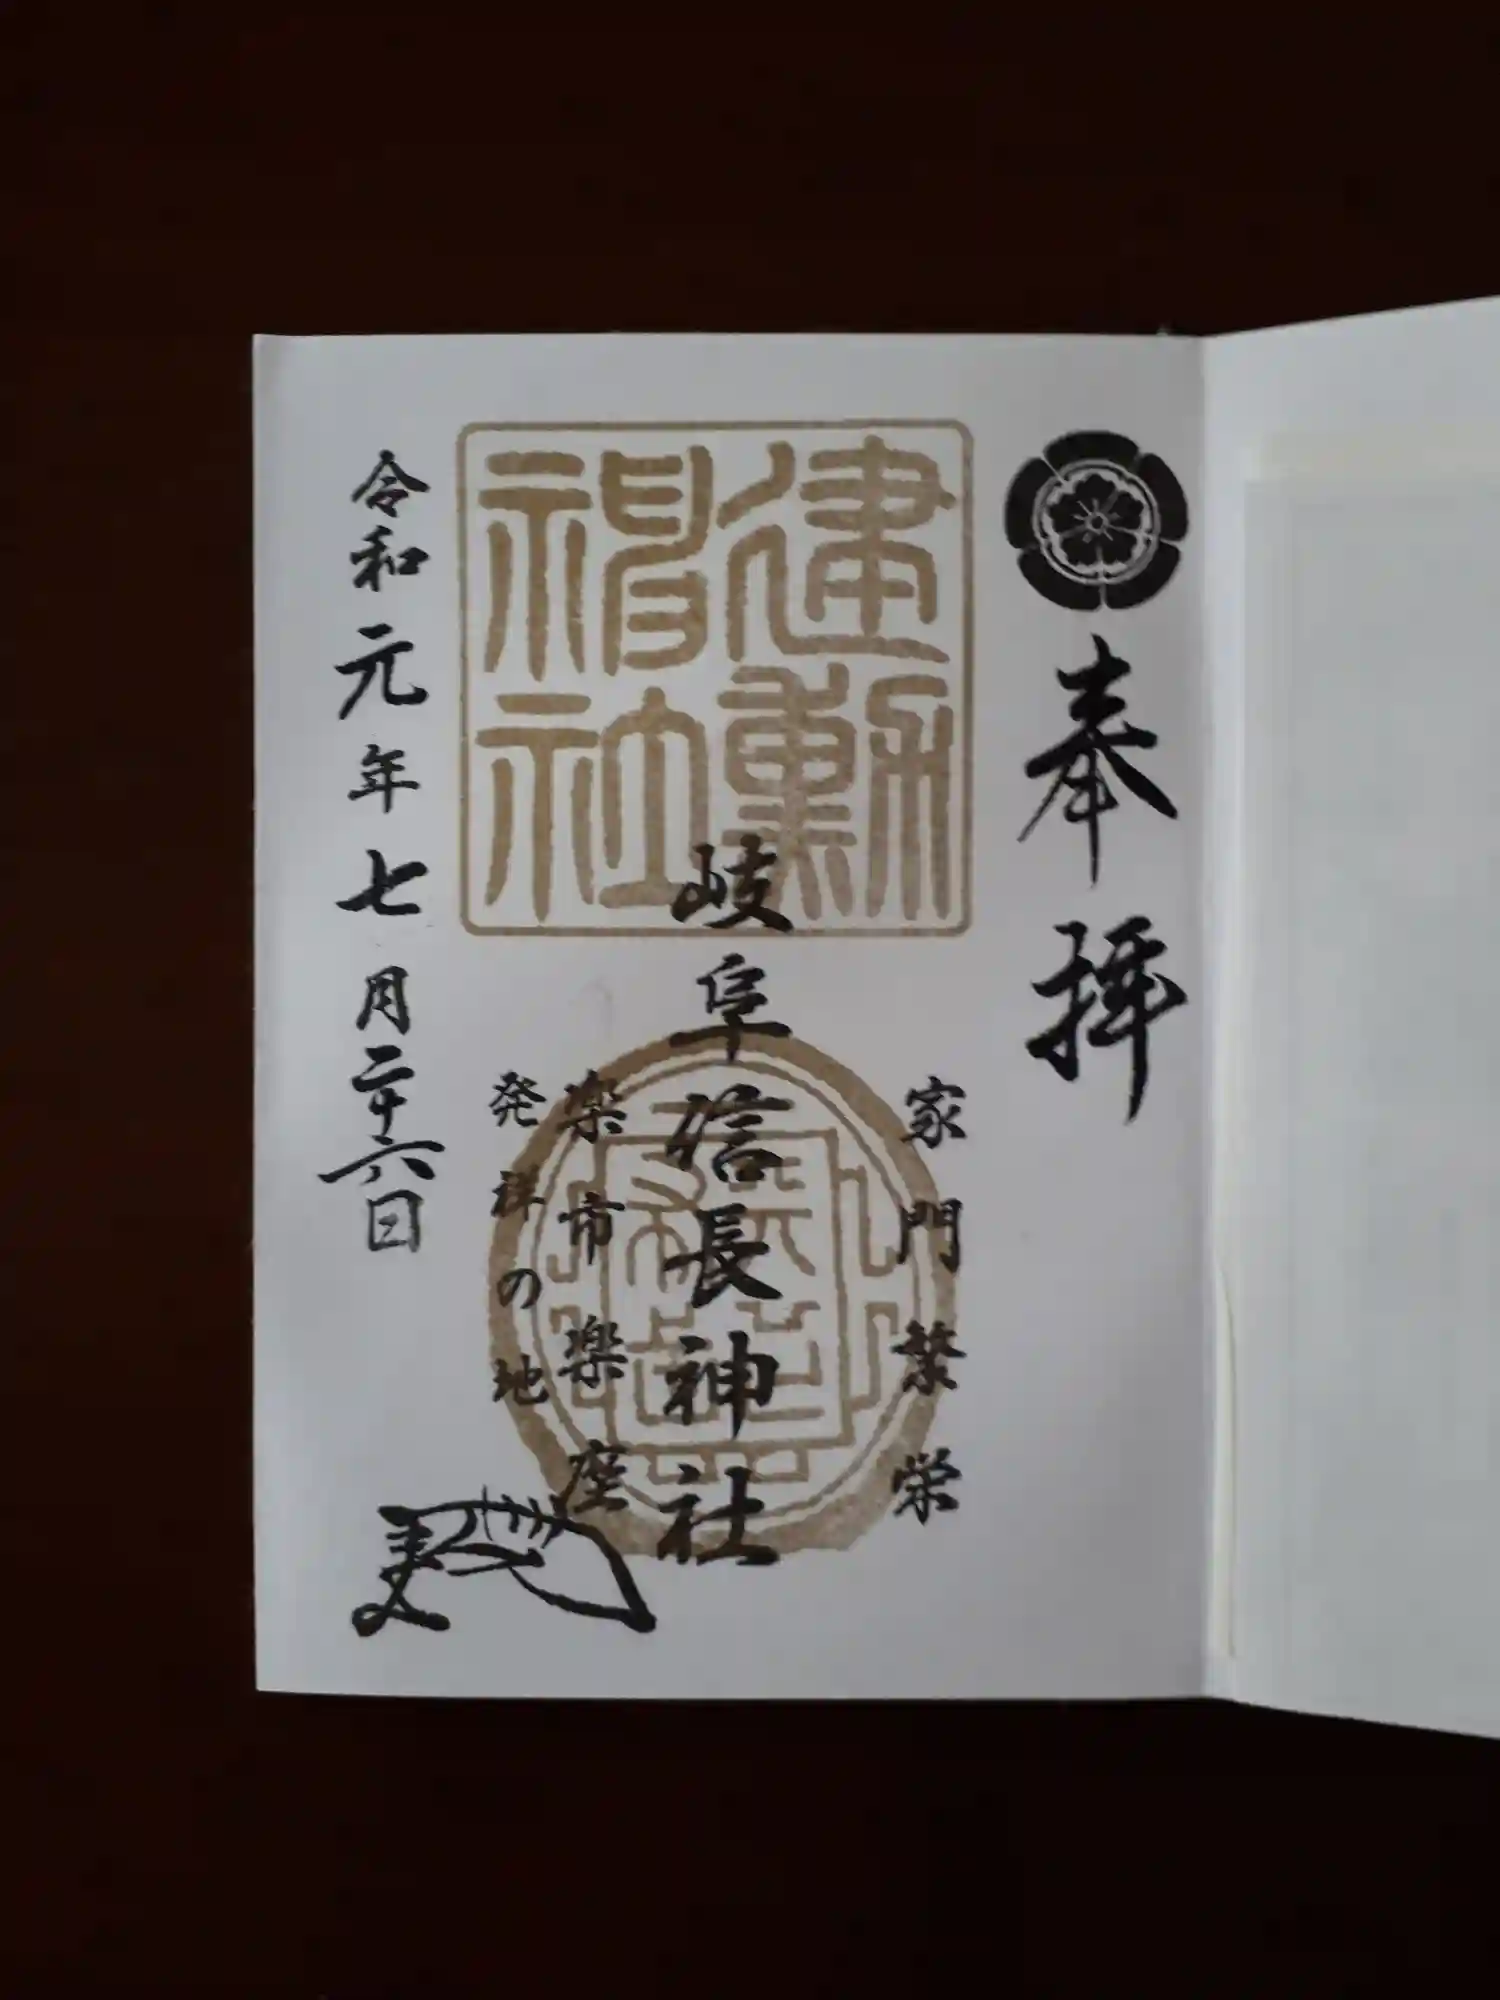 奉拝
建勲
神社
家門繁栄
岐阜信長神社
楽市楽座
発祥の地
令和元年七月二十六日